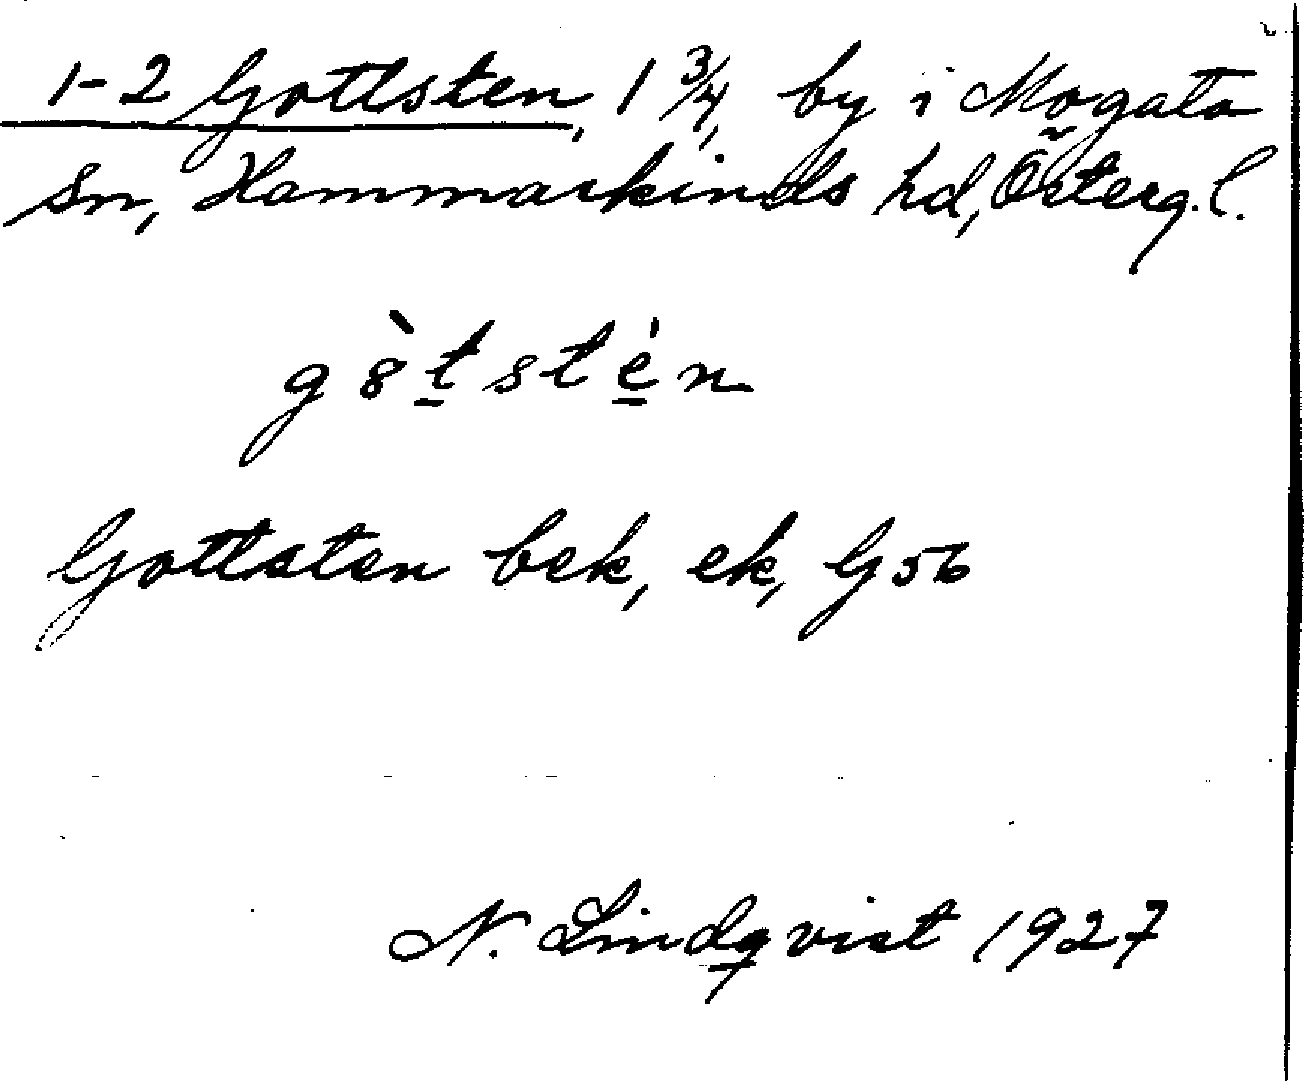 1-2 Gottsten, 1 3/4, by i Mogata
sn, Hammarkinds hd, Österg. l.
gò̀tstén
Gottsten bek, ek, G56
N. Lindqvist 1927